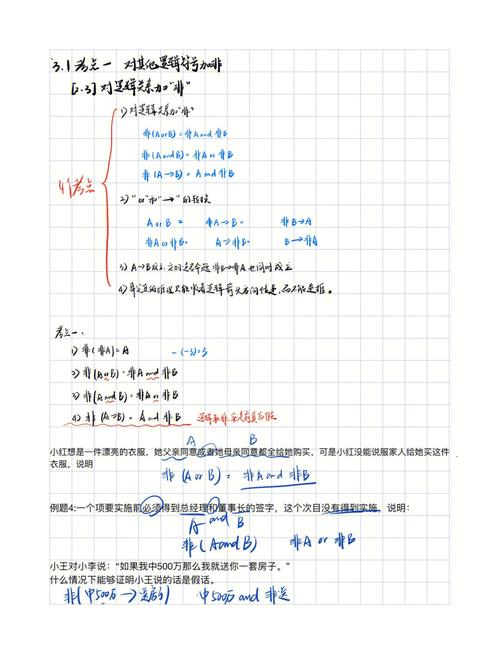 3.1 考点一 对其他逻辑符号加非
[1.3] 对逻辑关系加"非"
1) 对逻辑关系加"非"
非(A or B) = 非A and 非B
非(A and B) = 非A or 非B
非(A → B) = A and 非B
4个考点
2) "or"和"→"的转换
A or B = 非A→B = 非B→A
非A or 非B = A→非B = B→非A
3) A→B成立, 它的逆否命题 非B→非A 也同时成立
考点一:
1) 非(非A) = A -(-5)=5
2) 非(A or B) = 非A and 非B
3) 非(A and B) = 非A or 非B
4) 非 (A→B) = A and 非B
A B
小红想是一件漂亮的衣服,她父亲同意或者她母亲同意都全给她购买,可是小红没能说服家人给她买这件
衣服,说明
非 (A or B) = 非A and 非B
例题4:一个项要实施前必须得到总经理和董事长的签字,这个次目没有得到实施,说明:
A and B
非(A and B) 非A or 非B
小王对小李说:“如果我中500万那么我就送你一套房子。”
什么情况下能够证明小王说的话是假话。
非(中500万→送房) 中500万 and 非送